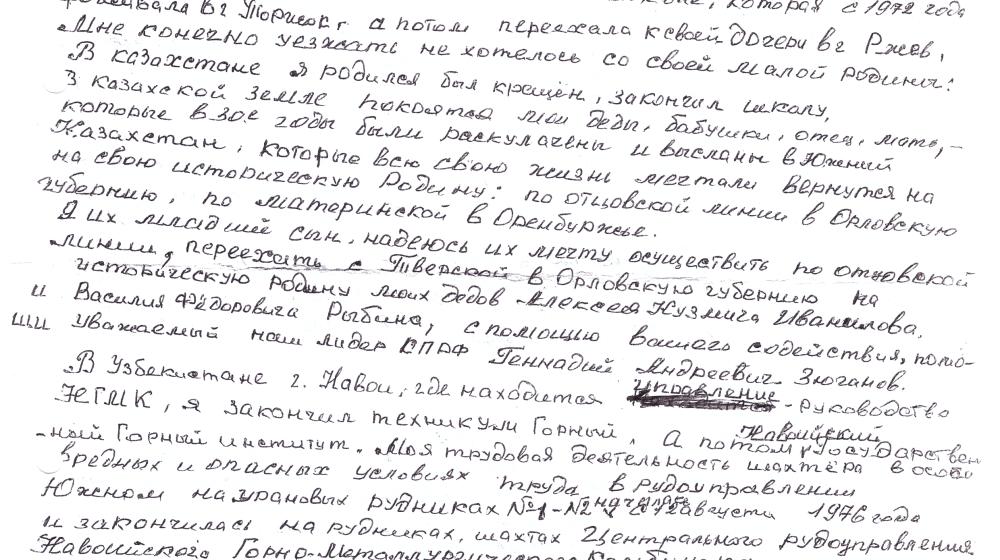 в г Торжок, а потом переехала к своей дочери в г Ржев,
Мне конечно уезжать не хотелось со своей малой родины:
В Казахстане я родился был крещён, закончил школу,
З казахской земле покоятся мои деды, бабушки, отец, мать, -
которые в 30е годы были раскулачены и высланы в Южний
Казахстан, которые всю свою жизнь мечтали вернутся на
на свою историческую Родину: по отцовской линии в Орловскую
губернию, по материнской в Оренбуржье.
Я их младший сын, надеюсь их мечту осуществить по отцовской
линии, переехать с Тверской в Орловскую губернию на
историческую родину моих дедов - Алексея Кузмича Иванилова,
и Василия Фёдоровича Рыбина, с помощью вашего содействия, помо-
щи уважаемый наш лидер КПРФ Геннадий Андреевич Зюганов.
В Узбекистане г. Навои, где находится управление - руководство
НГМК, я закончил техникум Горный, а потом Навоийский Государствен
-ный Горный институт. Моя трудовая деятельность шахтёра в особо
вредных и опасных условиях труда в рудоуправлении
Южном на урановых рудниках №1-№2 начал августа 1976 года
и закончилась на рудниках, шахтах Центрального рудоуправления
Навоийского Горно-Металлургического